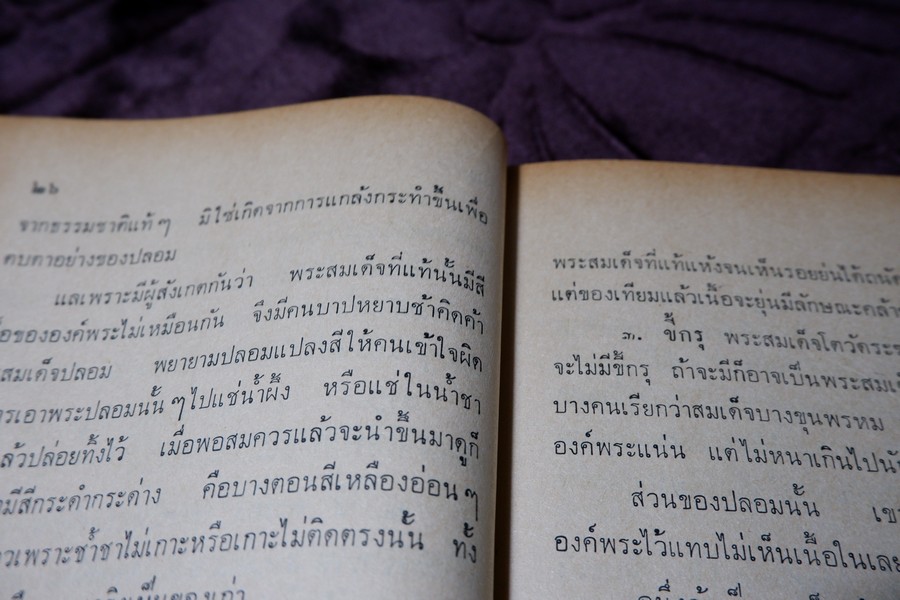 ๒๖
จากธรรมชาติแท้ ๆ มิใช่เกิดจากการแกล้งกระทำขึ้นเพื่อ
ตบตาอย่างของปลอม
และเพราะมีผู้สังเกตกันว่า พระสมเด็จที่แท้นั้นมีสี
ขององค์พระไม่เหมือนกัน จึงมีคนบาปหยาบช้าคิดค้า
สมเด็จปลอม พยายามปลอมแปลงสีให้คนเข้าใจผิด
เอาพระปลอมนั้น ๆ ไปแช่น้ำผึ้ง หรือแช่ในน้ำชา
แล้วปล่อยทิ้งไว้ เมื่อพอสมควรแล้วจะนำขึ้นมาดูก็
มีสีกระดำกระด่าง คือบางตอนสีเหลืองอ่อน ๆ
เพราะช้ำชาไม่เกาะหรือเกาะไม่ติดตรงนั้น ทั้ง
พระสมเด็จที่แท้แห้งจนเห็นรอยย่นได้ถนัด
แต่ของเทียมแล้วเนื้อจะยุ่นมีลักษณะคล้าย
๓. ขี้กรุ พระสมเด็จโตวัดระฆ
จะไม่มีขี้กรุ ถ้าจะมีก็อาจเป็นพระสมเด็
บางคนเรียกว่าสมเด็จบางขุนพรหม
องค์พระแน่น แต่ไม่หนาเกินไปนัก
ส่วนของปลอมนั้น เขา
องค์พระไว้แทบไม่เห็นเนื้อในเลย